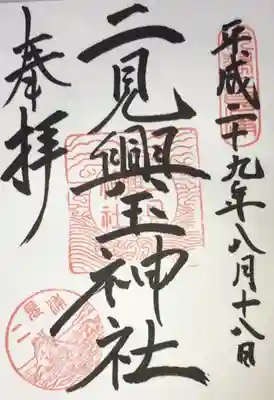 平成二十九年八月十八日
二見興玉神社
奉拝